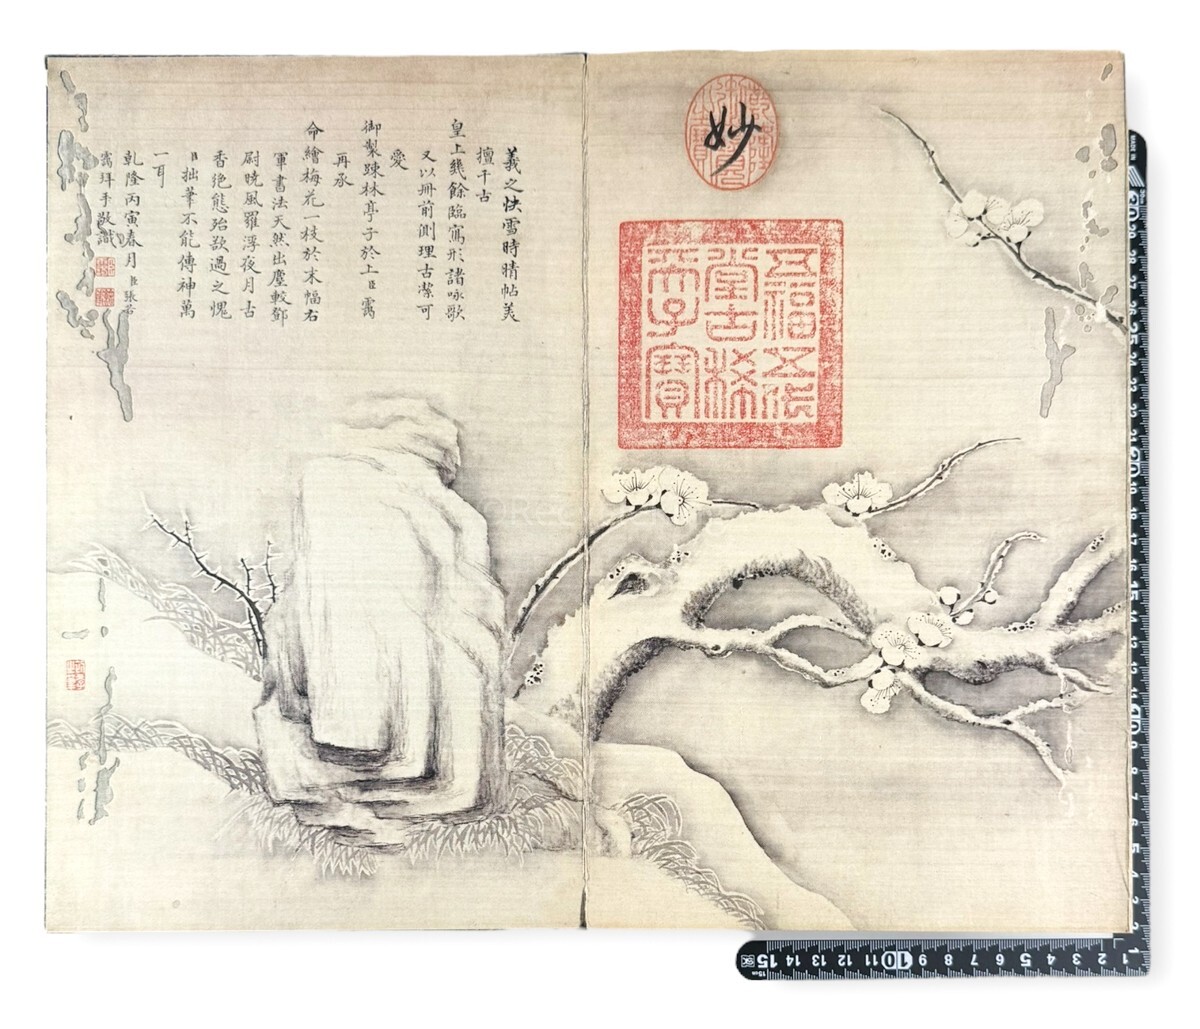 妙
五福五代
堂古稀
天子寶
羲之快雪時晴帖美
擅千古
皇上幾餘臨寫形諸咏歌
又以冊前測理古潔可
愛
御製疎林亭子於上臣靄
再承
命繪梅花一枝於末幅右
軍書法天然出塵較鄧
尉曉風羅浮夜月古
香絶態殆欲過之愧
臣拙筆不能傳神萬
一耳
乾隆丙寅春月臣張若
靄拜手敬識
15 14 13 12 11 10 9 8 7 6 5 4 3 2 1